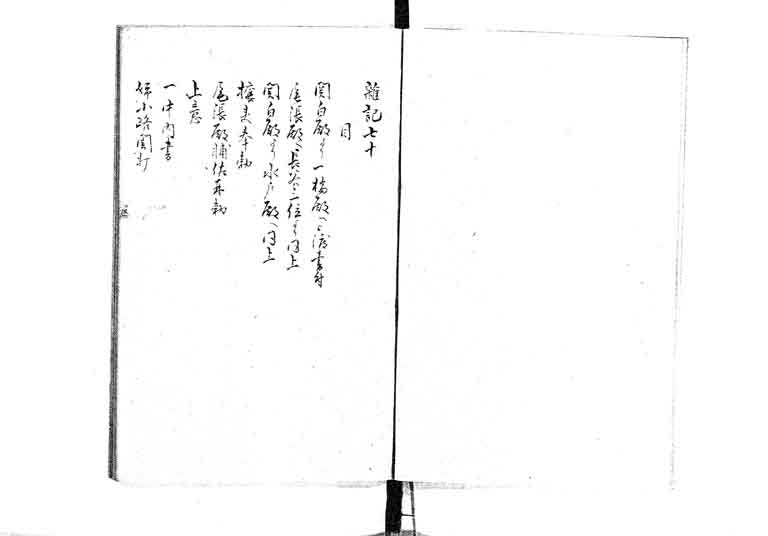 雑記七十
目
関白殿より一橋殿へ御渡書付
尾張殿へ長谷三位より同上
関白殿より水戸殿へ同上
攘夷奉勅
尾張殿輔佐奉勅
上意
一中内書
姉小路関打